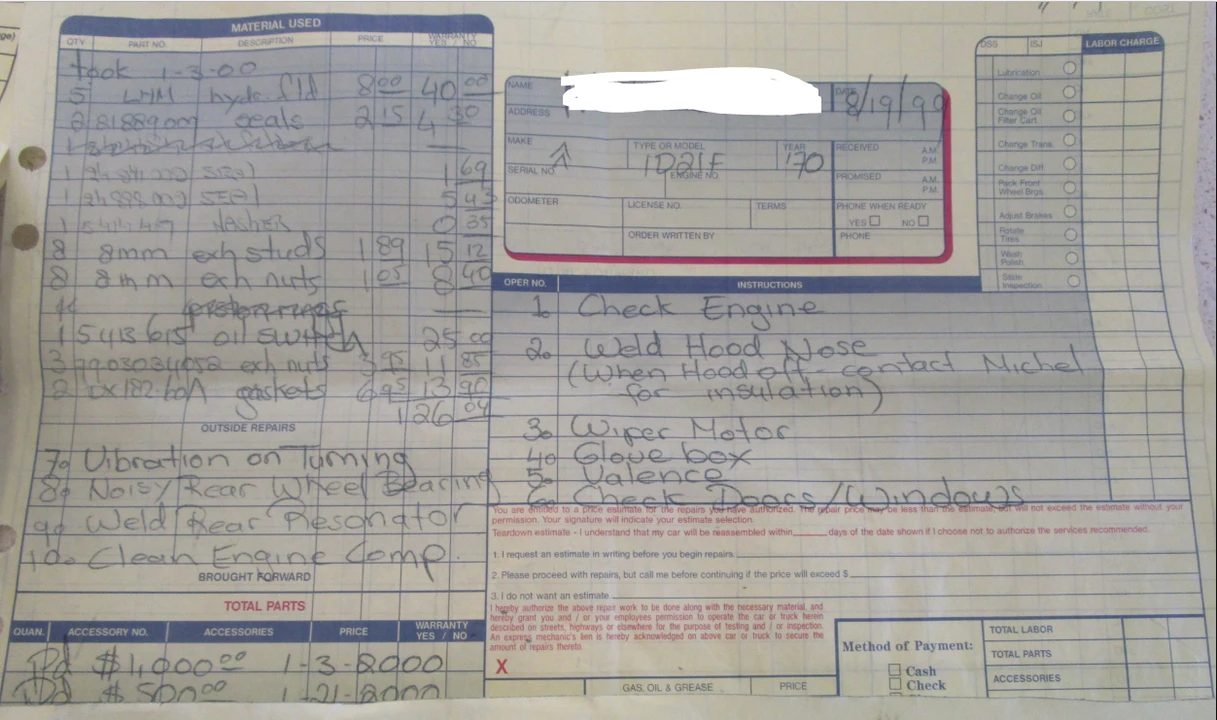 MATERIAL USED
QTY PART NO. DESCRIPTION PRICE WARRANTY YES / NO
took 1-3-00
5 LHM hydr. fld 8 00 40 00
2 seals 2 15 4 30
1 1 69
1 SEAL 5 43
1 WASHER 0 35
8 8mm exh studs 1 89 15 12
8 8mm exh nuts 1 05 8 40
1 5413615 oil switch 25 00
3 exh nuts 3 95 11 85
2 gaskets 6 95 13 90
126 04
OUTSIDE REPAIRS
7. Vibration on Turning
8. Noisy Rear Wheel Bearing
9. Weld Rear Resonator
10. Clean Engine Comp.
BROUGHT FORWARD
TOTAL PARTS
QUAN. ACCESSORY NO. ACCESSORIES PRICE WARRANTY YES / NO
Pd $1,000.00 1-3-2000
Pd $500.00 1-21-2000
NAME
DATE 8/19/99
ADDRESS
MAKE
TYPE OR MODEL ID21F
YEAR '70
RECEIVED A.M. P.M.
SERIAL NO.
ENGINE NO.
PROMISED A.M. P.M.
ODOMETER
LICENSE NO.
TERMS
PHONE WHEN READY
YES NO
ORDER WRITTEN BY
PHONE
DSS ISJ LABOR CHARGE
Lubrication
Change Oil
Change Oil Filter Cart.
Change Trans.
Change Diff.
Pack Front Wheel Brgs.
Adjust Brakes
Rotate Tires
Wash Polish
State Inspection
OPER NO. INSTRUCTIONS
1. Check Engine
2. Weld Hood Nose
(When Hood off - contact Michel
for insulation)
3. Wiper Motor
4. Glove box
5. Valence
6. Check Doors/Windows
You are entitled to a price estimate for the repairs you have authorized. The repair price may be less than the estimate, but will not exceed the estimate without your
permission. Your signature will indicate your estimate selection.
Teardown estimate - I understand that my car will be reassembled within days of the date shown if I choose not to authorize the services recommended.
1. I request an estimate in writing before you begin repairs.
2. Please proceed with repairs, but call me before continuing if the price will exceed $
3. I do not want an estimate.
I hereby authorize the above repair work to be done along with the necessary material, and
hereby grant you and / or your employees permission to operate the car or truck herein
described on streets, highways or elsewhere for the purpose of testing and / or inspection.
An express mechanic's lien is hereby acknowledged on above car or truck to secure the
amount of repairs thereto.
X
GAS, OIL & GREASE PRICE
Method of Payment:
Cash
Check
TOTAL LABOR
TOTAL PARTS
ACCESSORIES